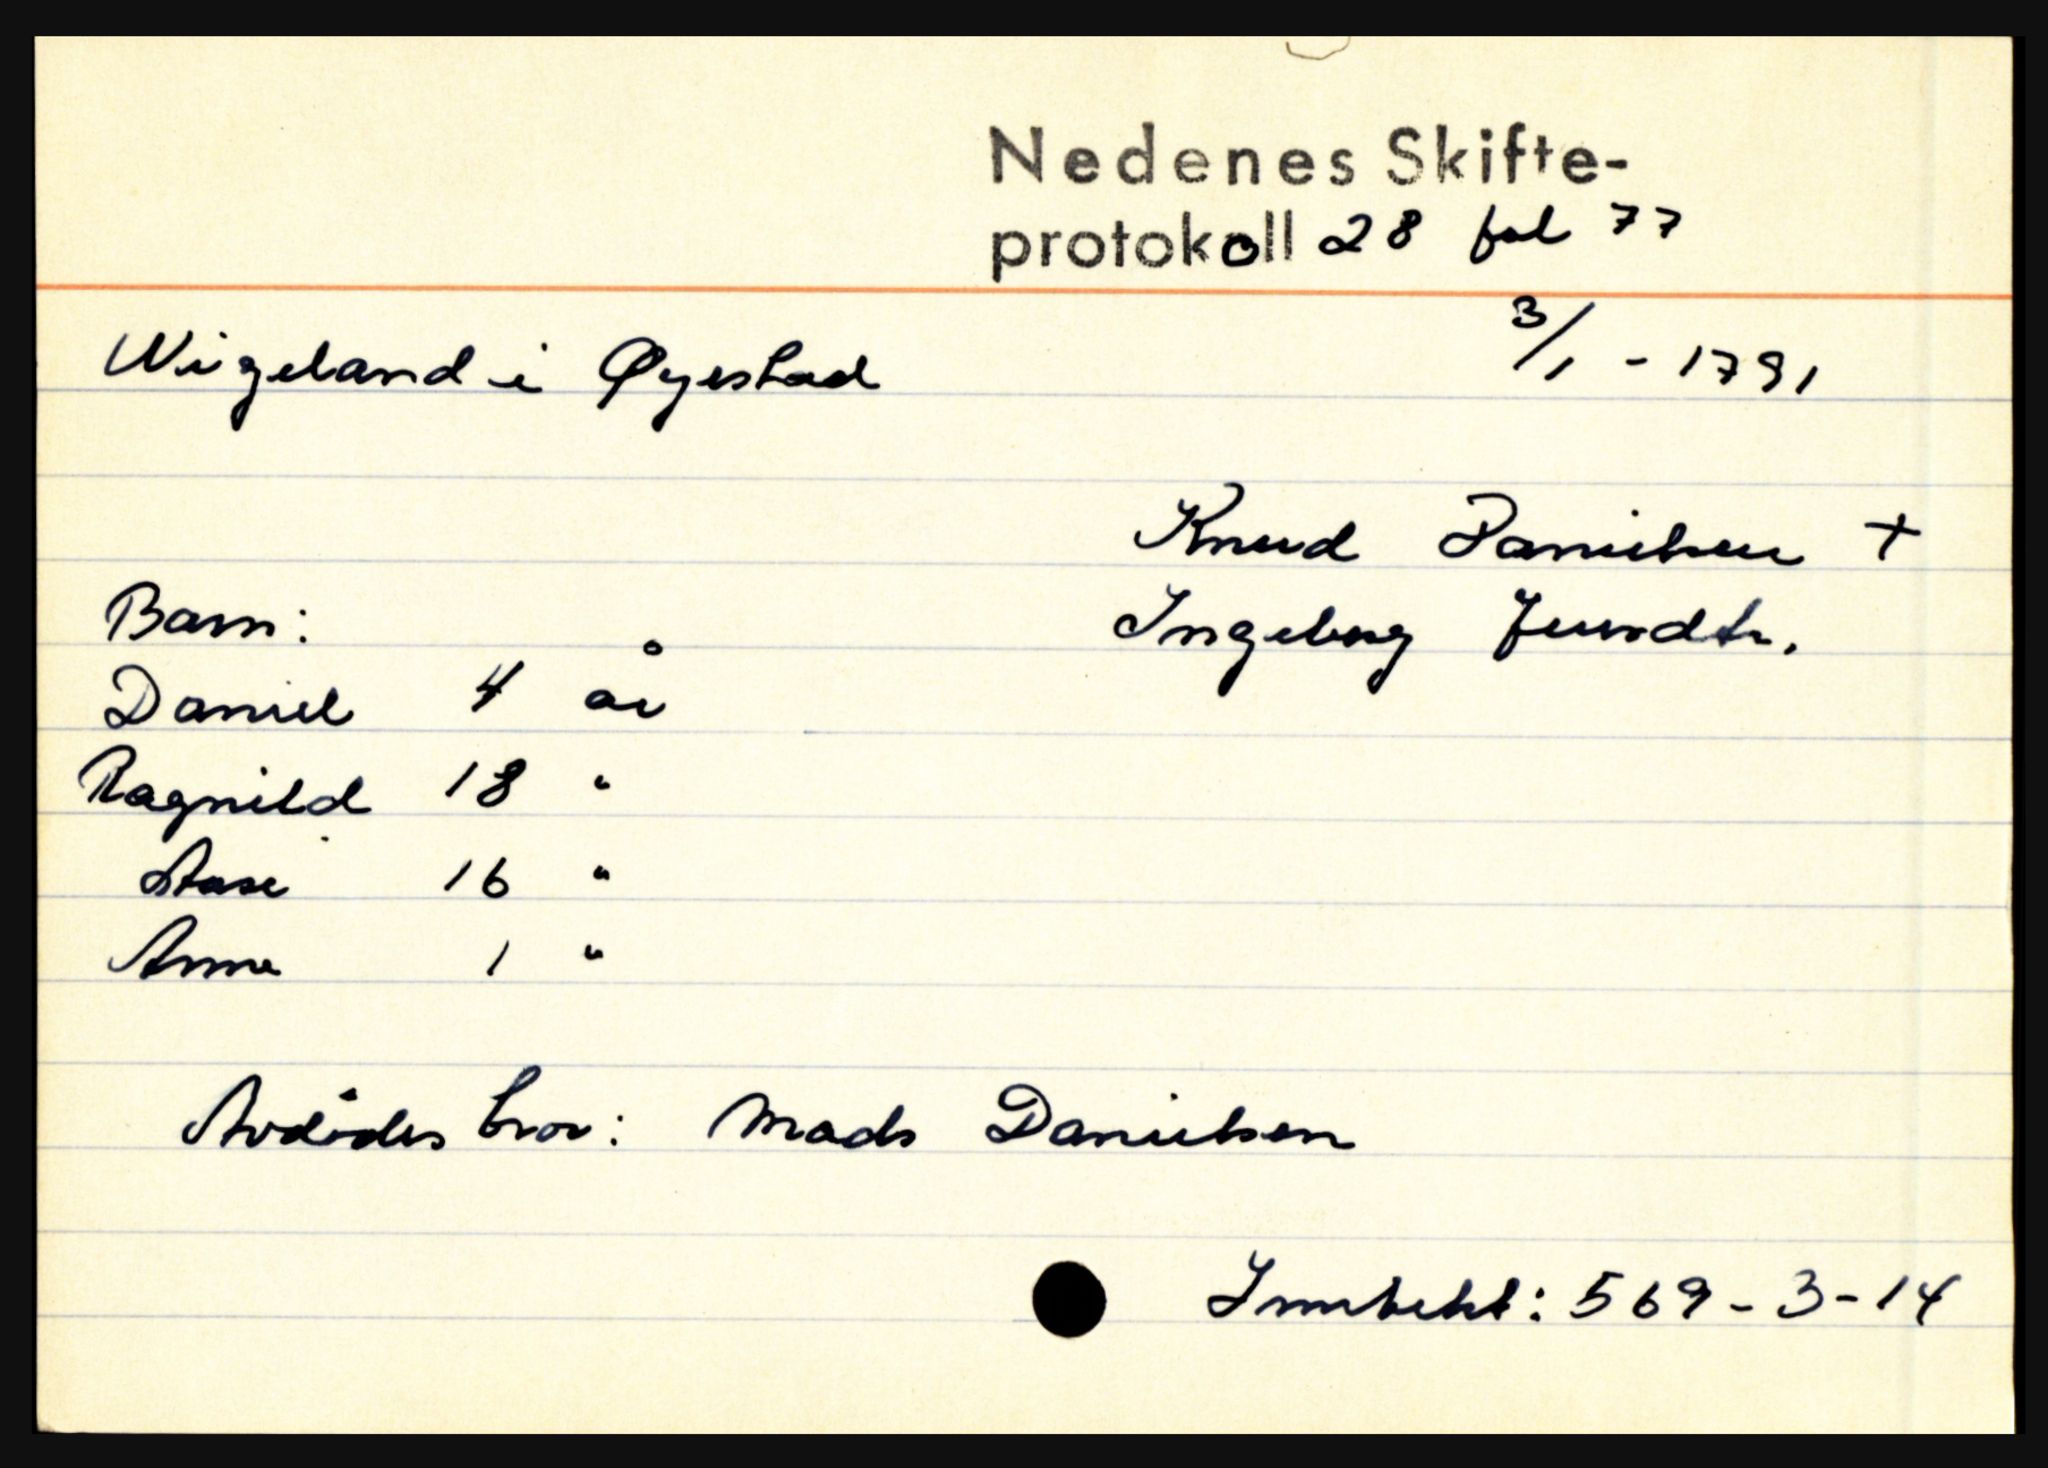 Nedenes Skifte-
protokoll 28 fol 77
Wigeland i Øyestad 3/1 - 1791
Knud Danielsen +
Barn: Ingeborg Juvsdtr.
Daniel 4 år
Ragnild 18 "
Aase 16 "
Anne 1 "
Avdødes bror: Mads Danielsen
Inntekt: 569-3-14